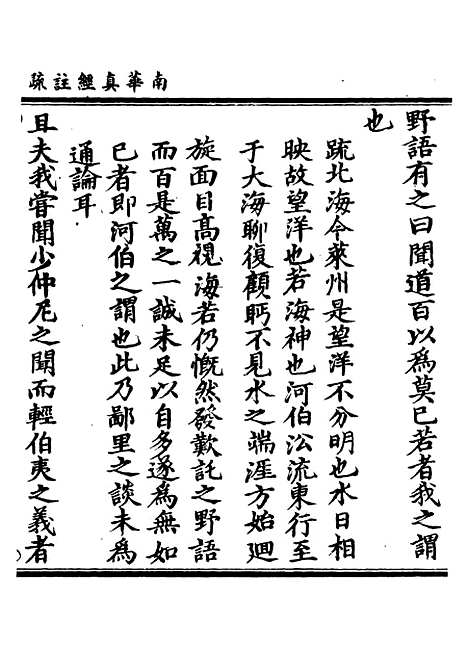 南華真經註疏
野語有之曰聞道百以爲莫已若者我之謂
也
疏北海今萊州是望洋不分明也水日相
映故望洋也若海神也河伯沿流東行至
于大海聊復顧眄不見水之端涯方始迴
旋面目高視海若仍慨然發歎託之野語
而百是萬之一誠未足以自多遂爲無如
已者即河伯之謂也此乃鄙里之談未爲
通論耳
且夫我嘗聞少仲尼之聞而輕伯夷之義者